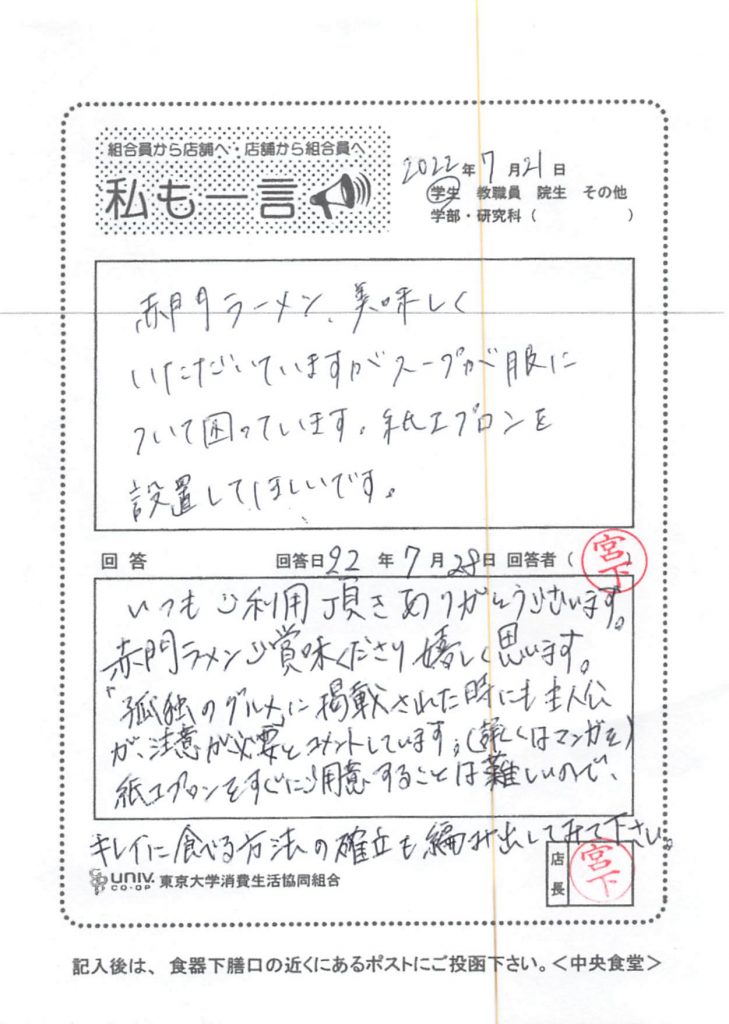 組合員から店舗へ・店舗から組合員へ
私も一言
2022年7月21日
学生 教職員 院生 その他
学部・研究科( )
赤門ラーメン、美味しく
いただいていますがスープが服に
ついて困っています。紙エプロンを
設置してほしいです。
回答 回答日22年7月28日 回答者( 宮下 )
いつもご利用頂きありがとうございます。
赤門ラーメンご賞味くださり嬉しく思います。
「孤独のグルメ」に掲載された時にも主人公
が、注意が必要とコメントしています。(詳しくはマンガを)
紙エプロンをすぐにご用意することは難しいので、
キレイに食べる方法の確立も編み出してみて下さい。
UNIV. CO-OP 東京大学消費生活協同組合
店長 宮下
記入後は、食器下膳口の近くにあるポストにご投函下さい。<中央食堂>